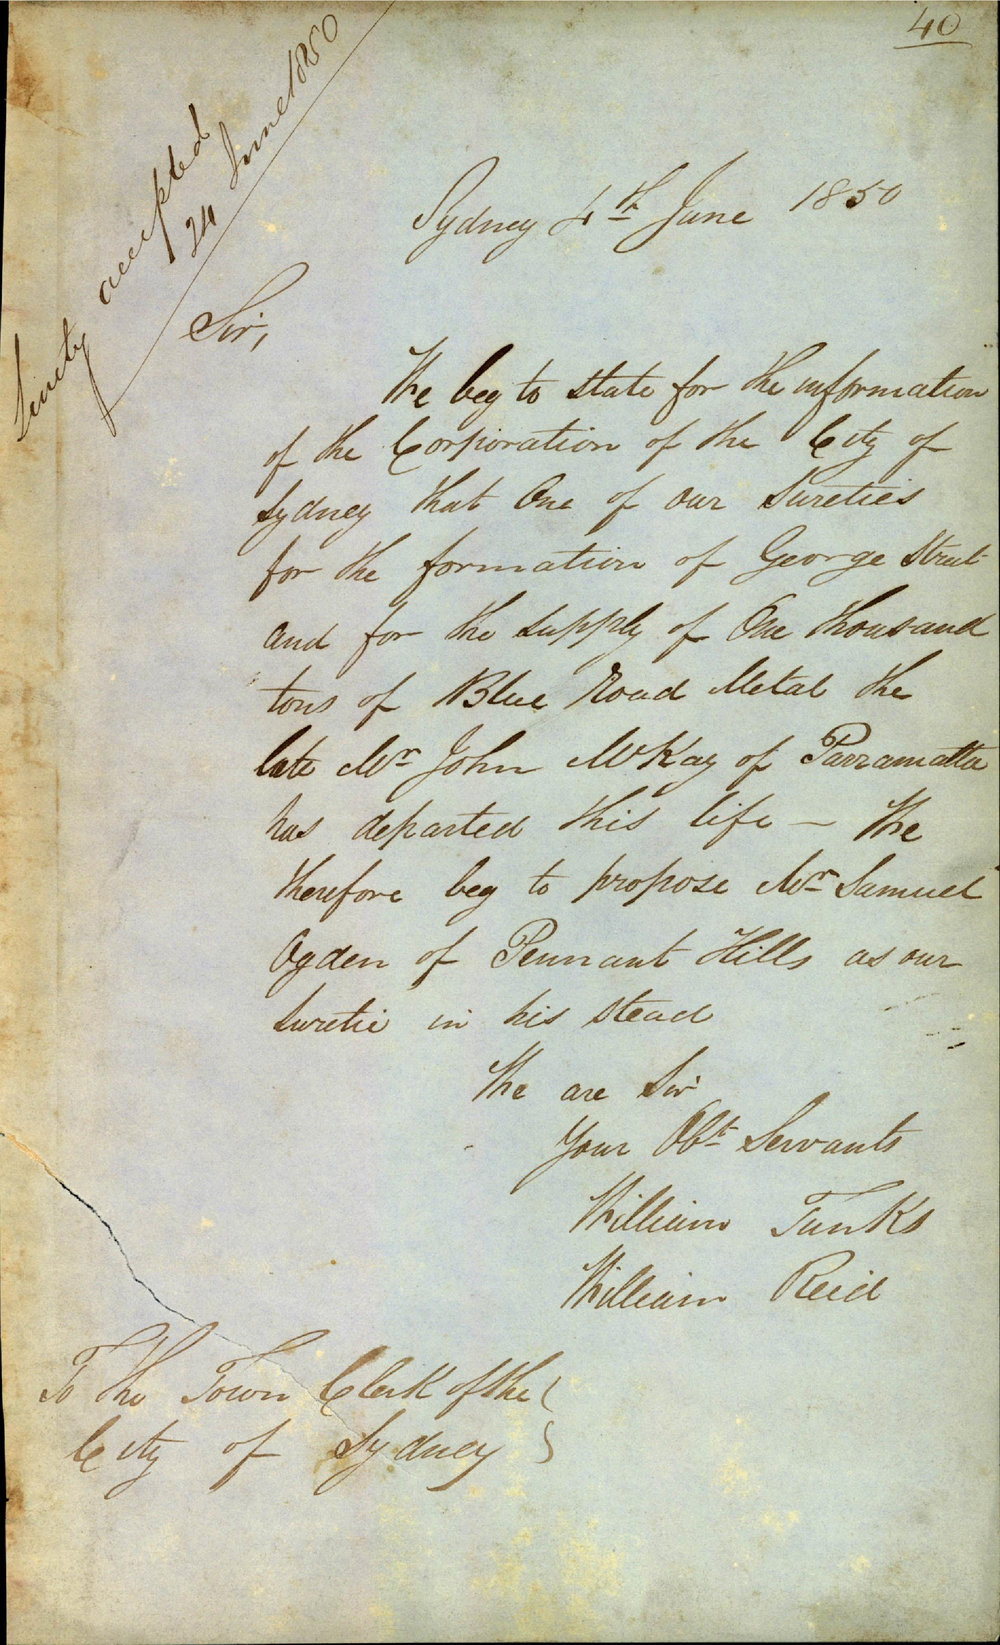 40
Surety accepted
24 June 1850
Sydney 4th June 1850
Sir,
We beg to state for the information
of the Corporation of the City of
Sydney that One of our Sureties
for the formation of George Street
and for the supply of One thousand
tons of Blue Road Metal the
late Mr John McKay of Parramatta
has departed this life – We
therefore beg to propose Mr Samuel
Ogden of Pennant Hills as our
Suretie in his stead
We are Sir
Your Obt Servants
William Tunks
William Reid
To The Town Clerk of the
City of Sydney